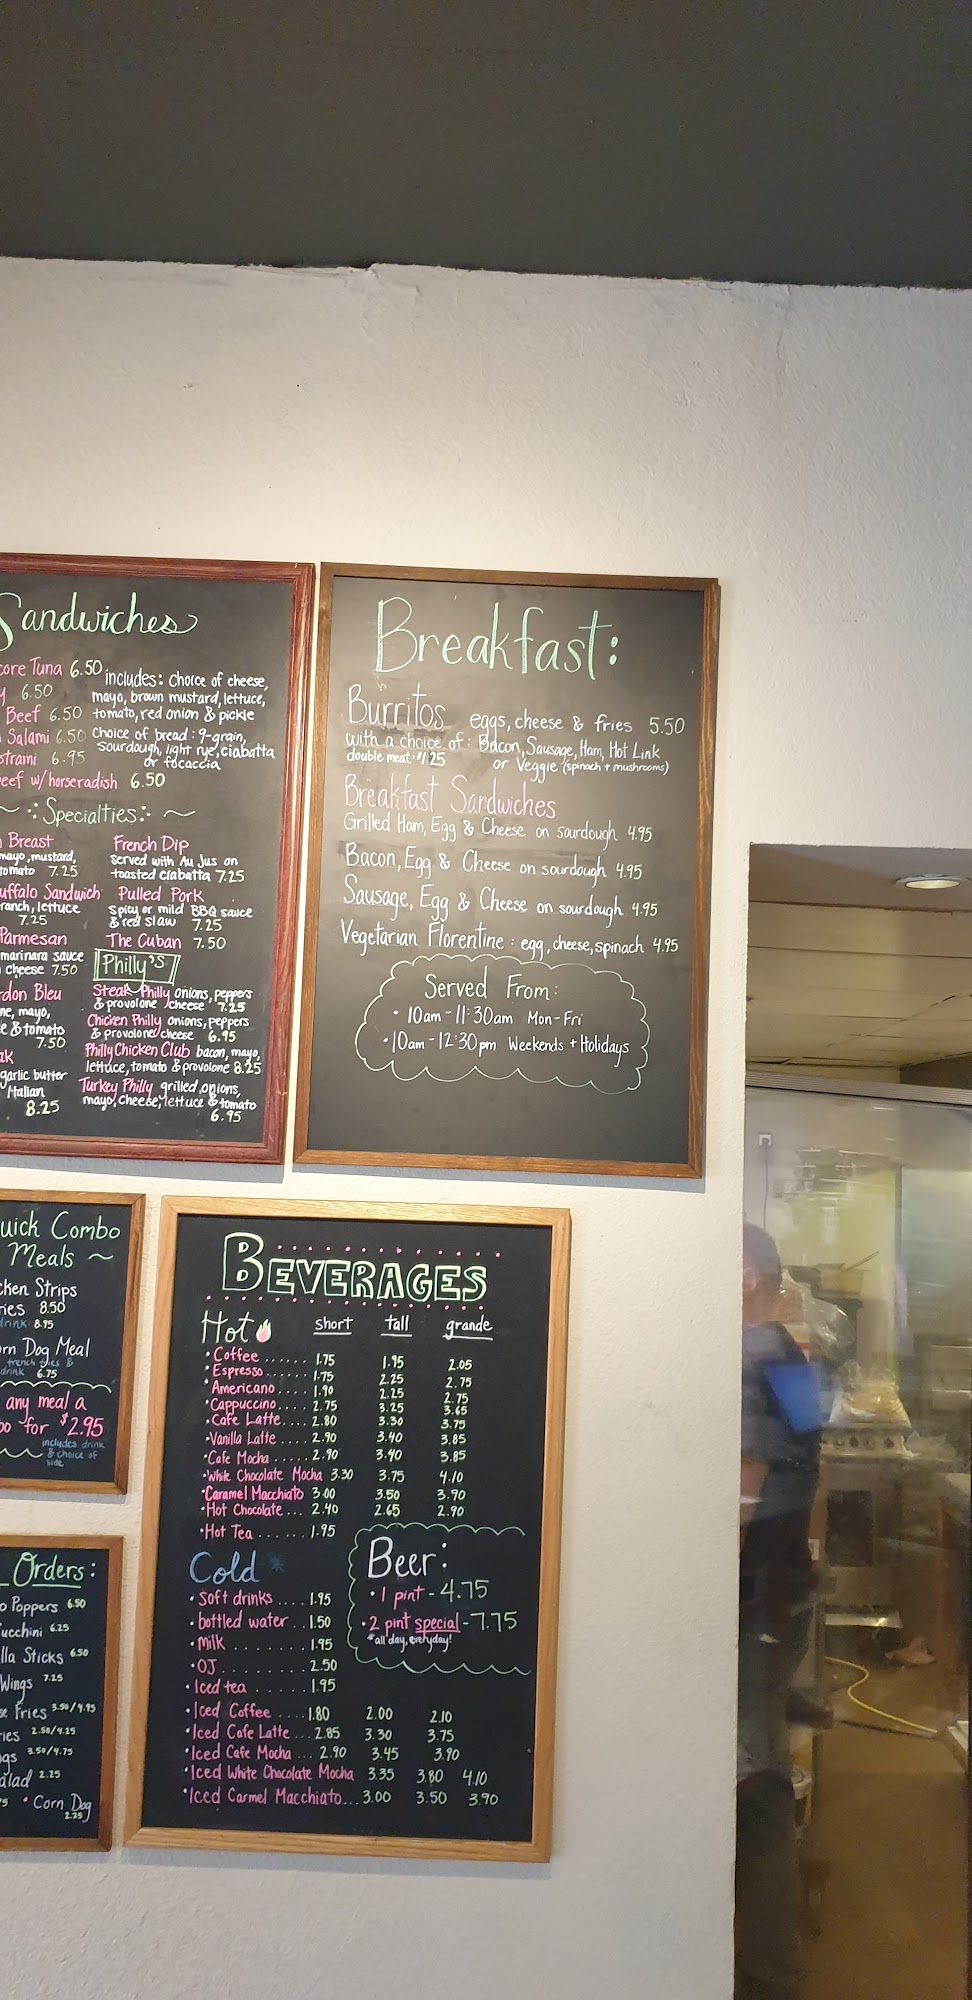 Sandwiches
core Tuna 6.50 includes: choice of cheese,
6.50 mayo, brown mustard, lettuce,
Beef 6.50 tomato, red onion & pickle
Salami 6.50 Choice of bread: 9-grain,
sourdough, light rye, ciabatta
strami 6.95 or focaccia
eef w/horseradish 6.50
Specialties:
Breast
mayo, mustard,
tomato 7.25
uffalo Sandwich
ranch, lettuce
7.25
Parmesan
marinara sauce
cheese 7.50
rdon Bleu
ne, mayo,
e & tomato
7.50
ak
garlic butter
Italian
8.25
French Dip
served with Au Jus on
toasted ciabatta 7.25
Pulled Pork
Spicy or mild BBQ sauce
& red slaw 7.25
The Cuban 7.50
Philly's
Steak Philly onions, peppers
& provolone cheese 7.25
Chicken Philly onions, peppers
& provolone cheese 6.95
Philly Chicken Club bacon, mayo,
lettuce, tomato & provolone 8.25
Turkey Philly grilled onions,
mayo, cheese, lettuce & tomato
6.95
Breakfast:
Burritos eggs, cheese & fries 5.50
with a choice of: Bacon, Sausage, Ham, Hot Link
double meat: $1.25 or Veggie (spinach + mushrooms)
Breakfast Sandwiches
Grilled Ham, Egg & Cheese on sourdough 4.95
Bacon, Egg & Cheese on sourdough 4.95
Sausage, Egg & Cheese on sourdough 4.95
Vegetarian Florentine: egg, cheese, spinach 4.95
Served From:
• 10am-11:30am Mon-Fri
• 10am-12:30pm Weekends + Holidays
uick Combo
Meals
cken Strips
ries 8.50
drink 8.95
rn Dog Meal
french fries &
drink 6.75
any meal a
bo for $2.95
includes drink
& choice of
side
Orders:
o Poppers 6.50
ucchini 6.25
lla Sticks 6.50
Wings 7.25
se Fries 3.50/4.95
ries 2.50/4.25
ngs 3.50/4.75
alad 2.25
• Corn Dog
2.25
BEVERAGES
Hot short tall grande
• Coffee ...... 1.75 1.95 2.05
• Espresso ...... 1.75 2.25 2.75
• Americano .... 1.90 2.25 2.75
• Cappuccino .... 2.75 3.25 3.65
• Cafe Latte .... 2.80 3.30 3.75
• Vanilla Latte .... 2.90 3.40 3.85
• Cafe Mocha ..... 2.90 3.40 3.85
• White Chocolate Mocha 3.30 3.75 4.10
• Caramel Macchiato 3.00 3.50 3.90
• Hot Chocolate ... 2.40 2.65 2.90
• Hot Tea ...... 1.95
Cold
• soft drinks .... 1.95
• bottled water .. 1.50
• Milk ....... 1.95
• OJ ......... 2.50
• Iced tea ..... 1.95
• Iced Coffee .... 1.80 2.00 2.10
• Iced Cafe Latte ... 2.85 3.30 3.75
• Iced Cafe Mocha ... 2.90 3.45 3.90
• Iced White Chocolate Mocha 3.35 3.80 4.10
• Iced Carmel Macchiato... 3.00 3.50 3.90
Beer:
• 1 pint - 4.75
• 2 pint special - 7.75
*all day, everyday!